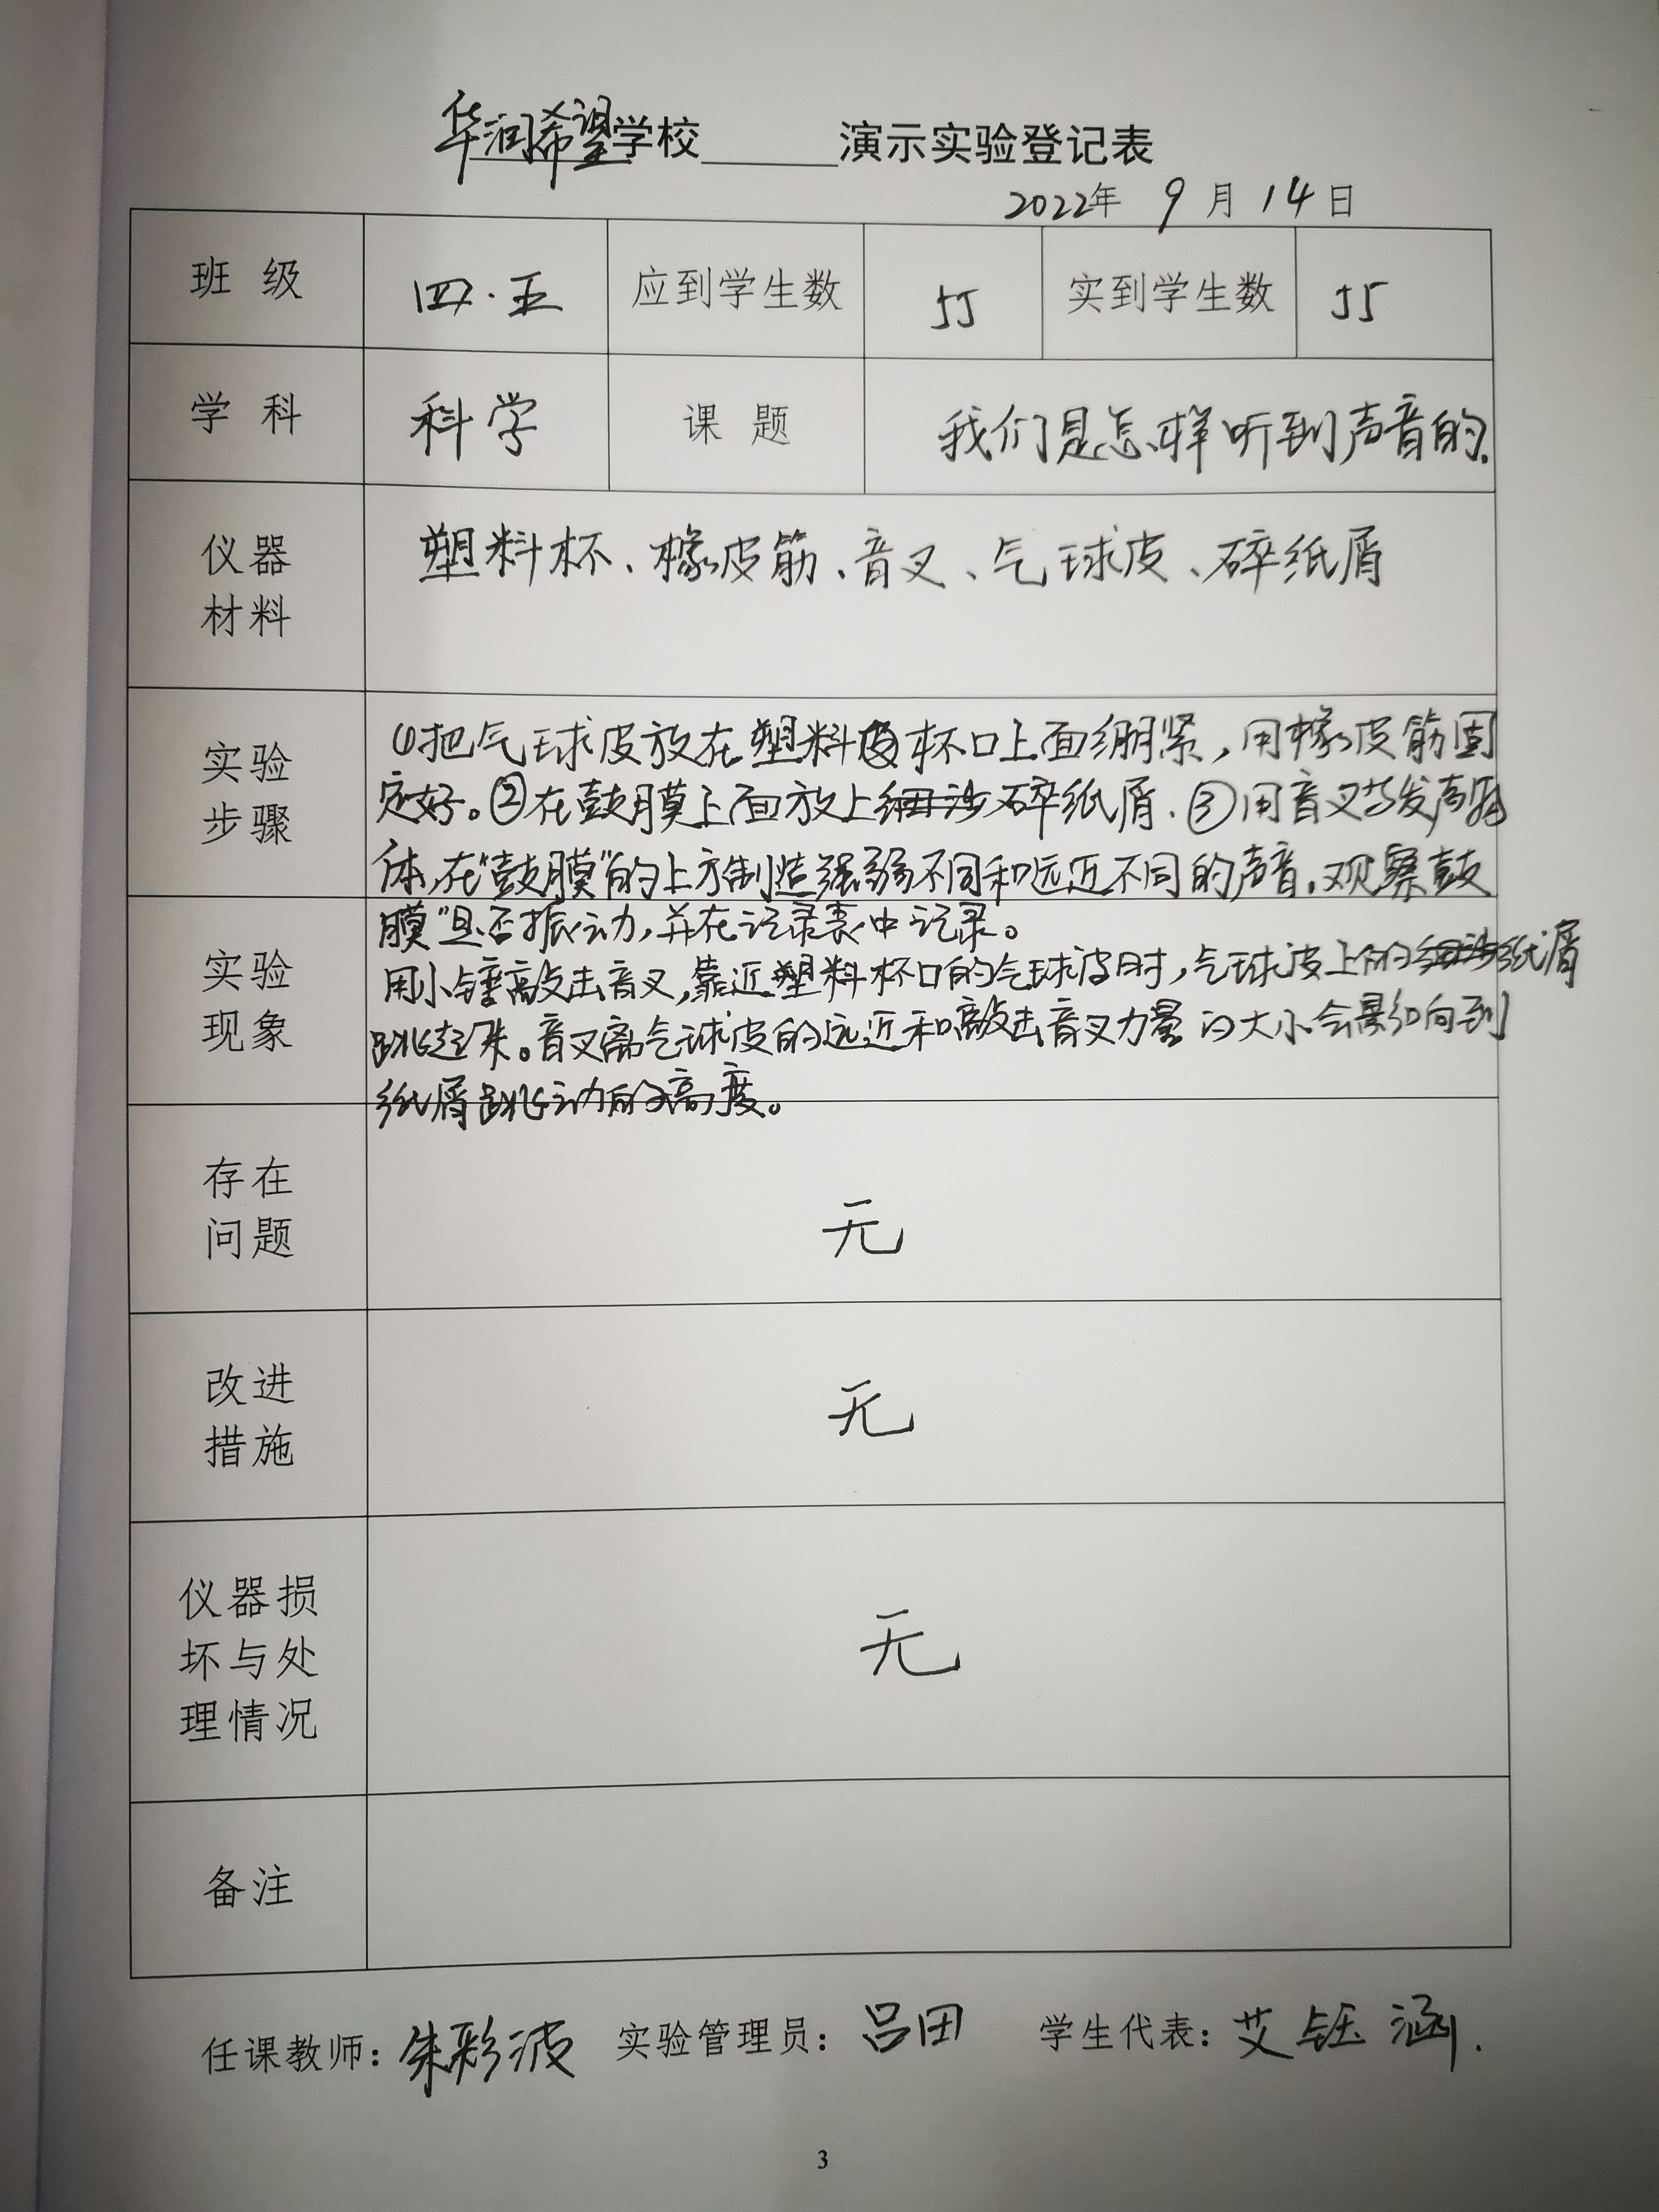 华润希望学校______演示实验登记表
2022年 9 月 14 日
班 级 四.五 应到学生数 55 实到学生数 55
学 科 科学 课 题 我们是怎样听到声音的.
仪器
材料
塑料杯、橡皮筋、音叉、气球皮、碎纸屑
实验
步骤
①把气球皮放在塑料杯口上面绷紧,用橡皮筋固
定好。②在鼓膜上面放上碎纸屑.③用音叉当发声物
体,在“鼓膜”的上方制造强弱不同和远近不同的声音,观察鼓
膜”是否振动,并在记录表中记录。
实验
现象
用小锤敲击音叉,靠近塑料杯口的气球皮时,气球皮上的纸屑
跳起来。音叉离气球皮的远近和敲击音叉力量的大小会影响到
纸屑跳动的高度。
存在
问题
无
改进
措施
无
仪器损
坏与处
理情况
无
备注
任课教师:朱彩波 实验管理员:吕田 学生代表:艾钰涵.
3